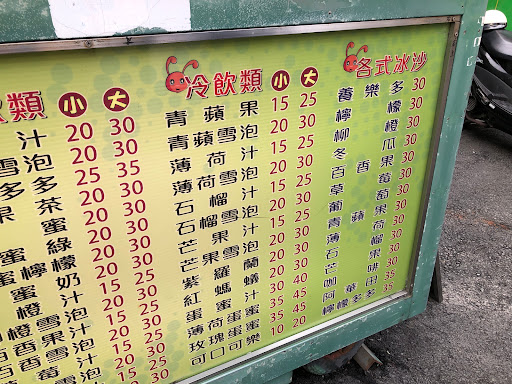 類 小 大
汁 20 30
雪泡 20 30
多多 25 35
果茶 20 30
蜜 20 30
蜜綠 20 30
蜜檸檬 20 30
冷飲類 小 大
青蘋果 15 25
青蘋雪泡 20 30
薄荷汁 15 25
薄荷雪泡 20 30
石榴汁 15 25
石榴雪泡 20 30
芒果汁 15 25
芒果雪泡 20 30
紫羅蘭 15 25
紅螞蟻 20 30
蛋蜜汁 30 40
薄荷蛋蜜 35 45
玫瑰蛋蜜 35 45
可口可樂 10 20
各式冰沙
養樂多 30
檸檬 30
柳橙 30
冬瓜 30
百香果 30
草莓 30
葡萄 30
青蘋果 30
薄荷 30
石榴 30
芒果 30
咖啡 30
阿華田 35
檸檬多多 35